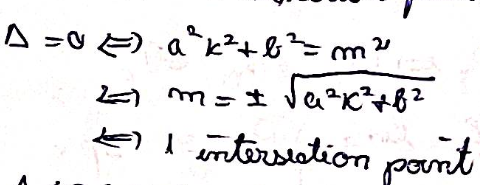 Δ = 0 ⇔ a²k² + b² = m²
⇔ m = ± √(a²k² + b²)
⇔ 1 intersection point